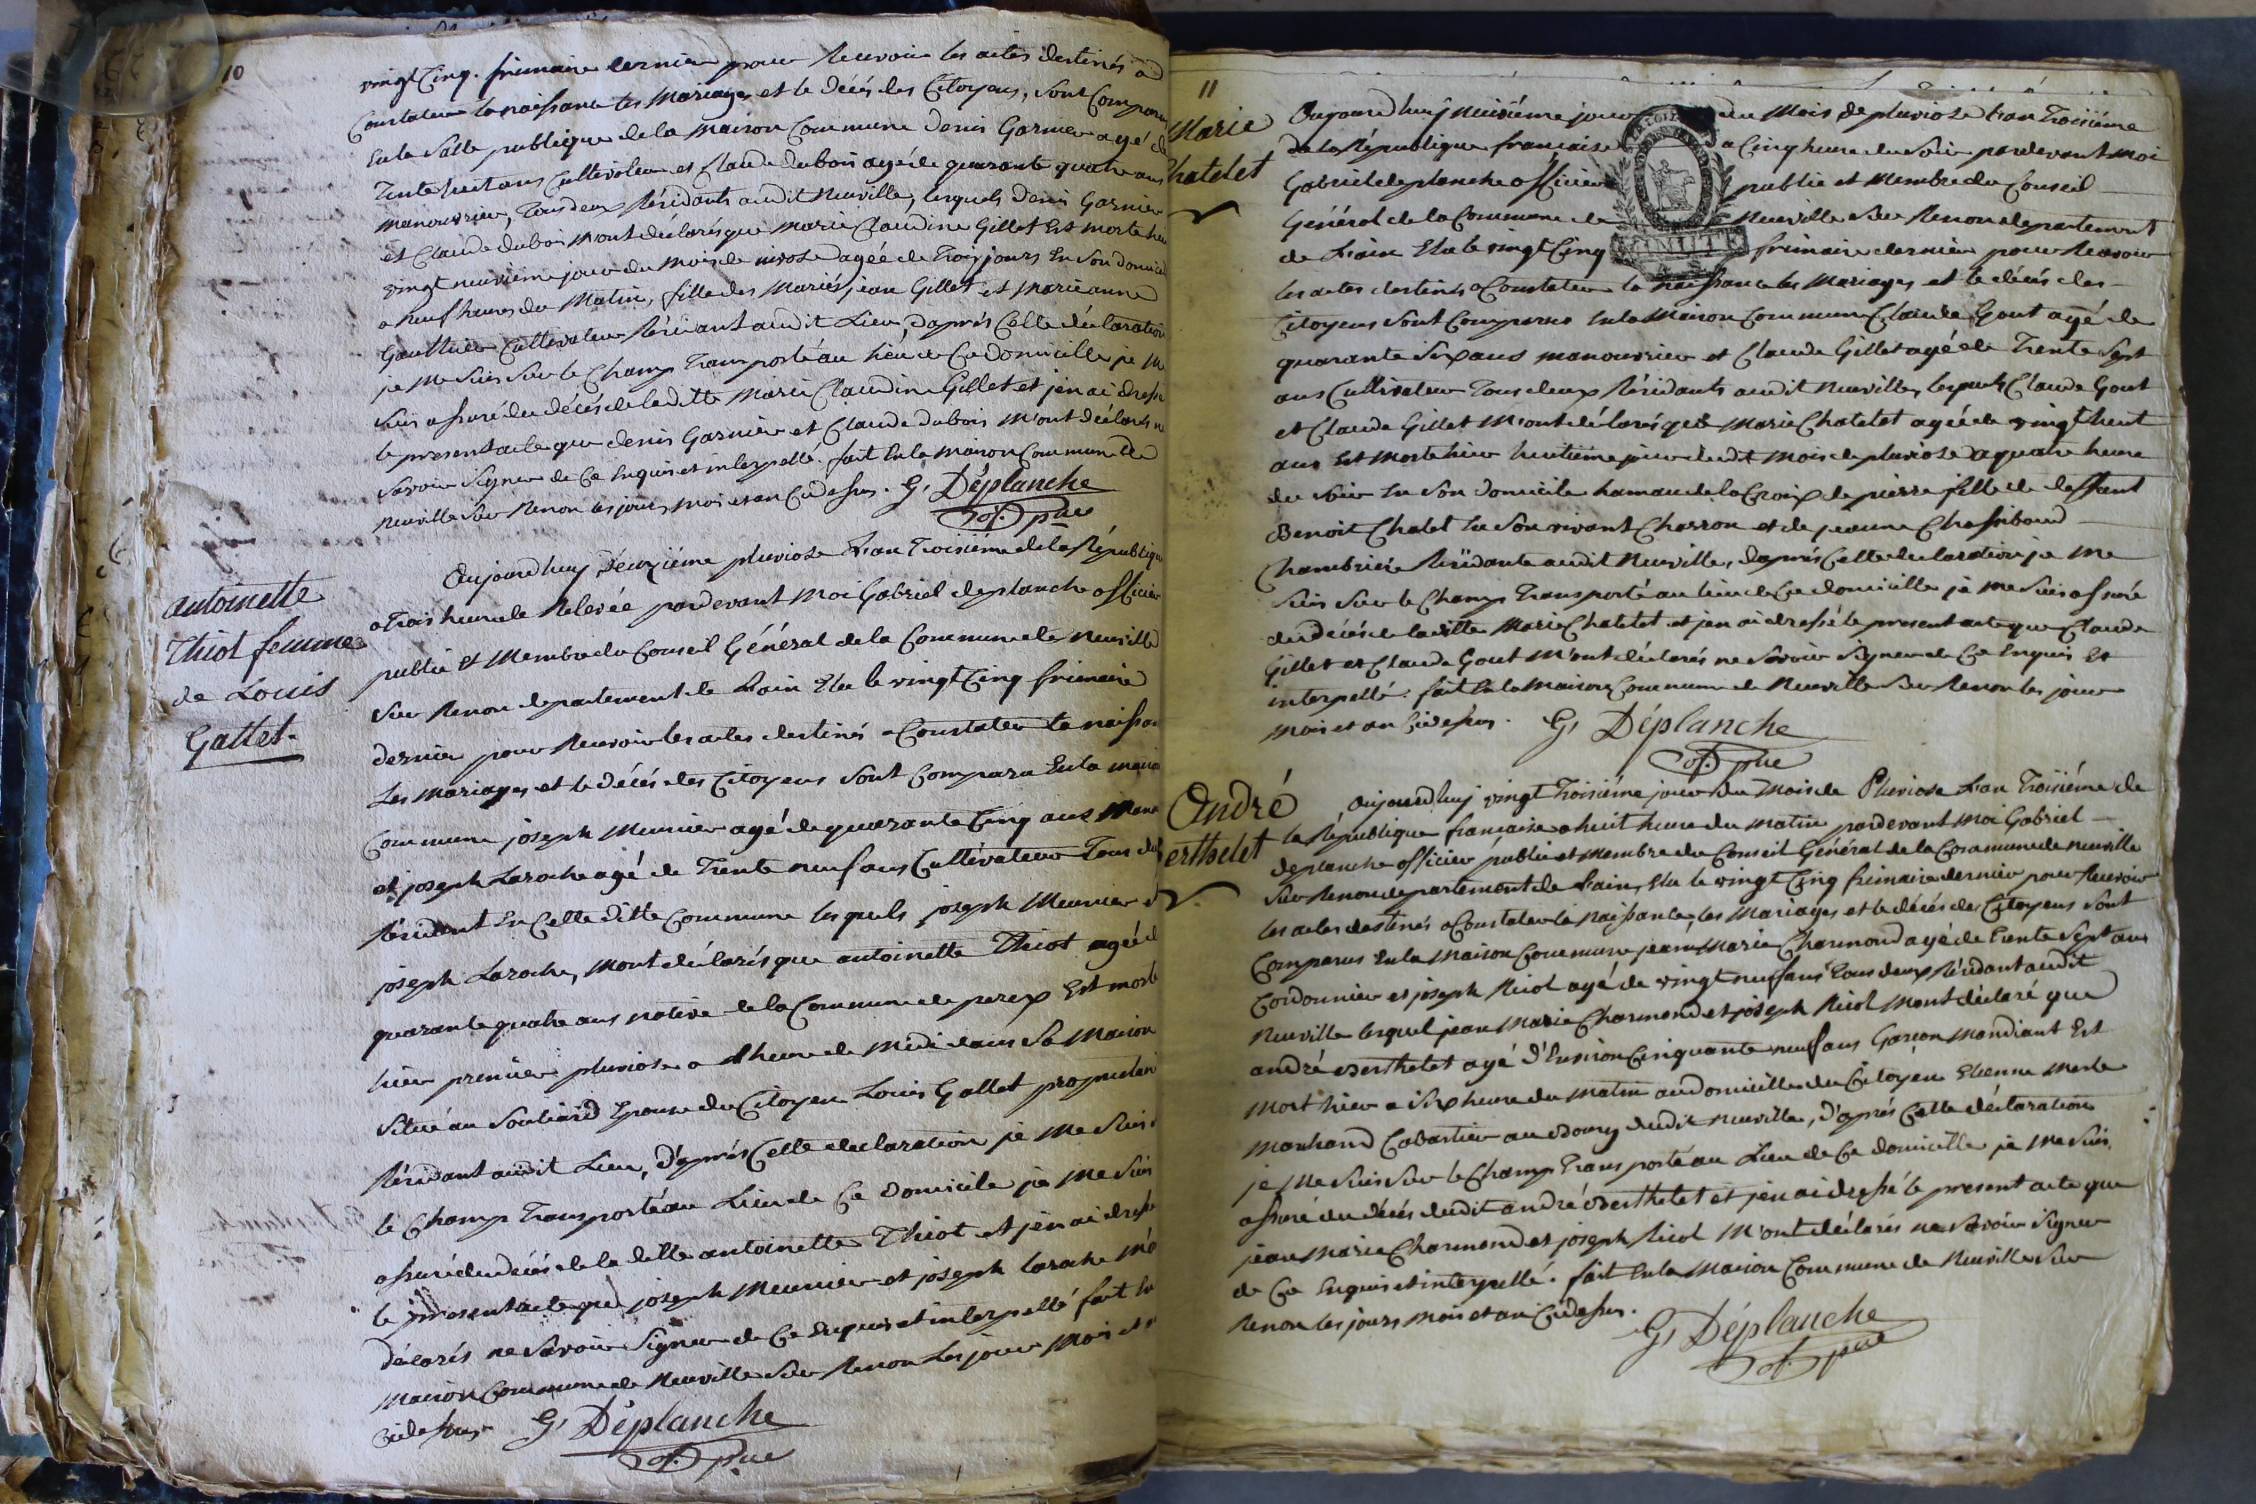 10
vingt Cinq. frimaire dernier pour Recevoir les actes destinés a
Constater la naissance les Mariages et le décés des Citoyens, sont Comparu
En la Salle publique de la maison Commune denis Garnier agé de
Trente huit ans Cultivateur et Claude dubois agé de quarante quatre ans
manouvrier, Tous deux Résidants audit Neuville, lesquels denis Garnier
et Claude dubois m'ont déclarés que Marie Claudine Gillet Est morte hier
vingt neuvieme jour du Mois de nivose agée de Trois jours En son domicile
a neuf heures du Matin, fille des Mariés jean Gillet et Marie anne
Gauthier Cultivateur Résidant audit Lieu, d'aprés Cette déclaration
je Me Suis Sur le Champ Transporté au lieu de Ce domicille je Me
Suis assuré du décés de laditte Marie Claudine Gillet et j'en ai dressé
le present acte que denis Garnier et Claude dubois M'ont déclarés ne
Savoir Signer de Ce Enquis et interpellé. fait En la Maison Commune de
Neuville Sur Renon les jours, mois et an Cidessus. G. Déplanche
of. p.ue
antoinette
Thiot femme
de Louis
Gallet.
Aujourd'huy Deuxiéme pluviose L'an Troisiéme de la République
a Trois heure de Relevée pardevant Moi Gabriel deplanche officier
public et Membre du Conseil Général de la Commune de Neuville
Sur Renon departement de Lain Elu le vingt Cinq frimaire
dernier pour Recevoir les actes destinés a Constater la naissan
Les Mariages et le décés des Citoyens Sont Comparu En la maison
Commune joseph Meunier agé de quarante Cinq ans Mano
et joseph Laroche agé de Trente neuf ans Cultivateur Tous de
Résident En Cette ditte Commune lesquels joseph Meunier et
joseph Laroche, Mont déclarés que antoinette Thiot agée de
quarante quatre ans native de la Commune de perex Est morte
hier premier pluviose a lheure de Midi dans Sa Maison
Situé au Soubiard Epouse du Citoyen Louis Gallet proprietair
Résidant audit Lieu, D'aprés Cette declaration je Me Suis
le Champ Transporté au Lieu de Ce Domicile je Me Suis
assuré du décés de la ditte antoinette Thiot et j'en ai dressé
le present acte que joseph Meunier et joseph Laroche M'o
déclarés ne Savoir Signer de Ce Enquis et interpellé fait En
Maison Commune de Neuville Sur Renon Les jour Mois et
cidessus. G. Déplanche
of. p.ue
11
Marie
Chatelet
Aujourd'huy Neuviéme jour du Mois de pluviose L'an Troisiéme
de la République francaise a Cinq heure du Soir pardevant Moi
Gabriel deplanche officier public et Membre du Conseil
Général de la Commune de Neuville Sur Renon departement
de Lain Elu le vingt Cinq frimaire dernier pour Recevoir
MINUTE
les actes destinés a Constater la Naissance les Mariages et le décés des
Citoyens Sont Comparus En la Maison Commune Claude Gout agé de
quarante Six ans manouvrier et Claude Gillet agé de Trente Sept
ans Cultivateur Tous deux Résidants audit Neuville, lesquels Claude Gout
et Claude Gillet M'ont déclarés que Marie Chatelet agée de vingt huit
ans Est Morte hier huitieme jour dudit Mois de pluviose a quatre heure
du Soir En Son Domicile hamau de la Croix de pierre fille de deffunt
Benoit Chalet En Son vivant Charron et de jeanne Chassibaud
Chambriére Residante audit Neuville, daprés Cette declaration je Me
Suis Sur le Champ Transporté au lieu de Ce domicille je Me Suis assuré
du décés de laditte Marie Chatelet et jen ai dressé le present acte que Claude
Gillet et Claude Gout M'ont déclarés ne Savoir Signer de Ce Enquis Et
interpellé. fait En la Maison Commune de Neuville Sur Renon les jour
Mois et an Cidessus. G. Déplanche
of. p.ue
André
erthelet
Aujourd'huy vingt Troisiéme jour du Mois de Pluviose L'an Troisiéme de
la République francaise a huit heure du Matin pardevant Moi Gabriel
deplanche officier public et Membre du Conseil Général de la Commune de Neuville
Sur Renon departement de Lain, Elu le vingt Cinq frimaire dernier pour Recevoir
les actes destinés a Constater la Naissance les Mariages et le décés des Citoyens Sont
Comparus En la Maison Commune jean Marie Charmond agé de Trente Sept ans
Cordonnier et joseph Ricol agé de vingt neuf ans Tous deux Résidant audit
Neuville lesquel jean Marie Charmond et joseph Ricol Mont déclaré que
andré Berthelet agé d'Environ Cinquante neuf ans Garcon Mandiant Est
Mort hier a Six heure du Matin au domicille du Citoyen Etienne Merle
Marchand Cabartier au Bourg dudit Neuville, d'aprés Cette déclaration
je Me Suis Sur le Champ Transporté au Lieu de Ce domicille je Me Suis
assuré du décés dudit andré Berthelet et jen ai dressé le present acte que
jean Marie Charmond et joseph Ricol M'ont déclarés ne Savoir Signer
de Ce Enquis et interpellé. fait En la Maison Commune de Neuville Sur
Renon les jours Mois et an Cidessus.
G. Déplanche
of. p.ue